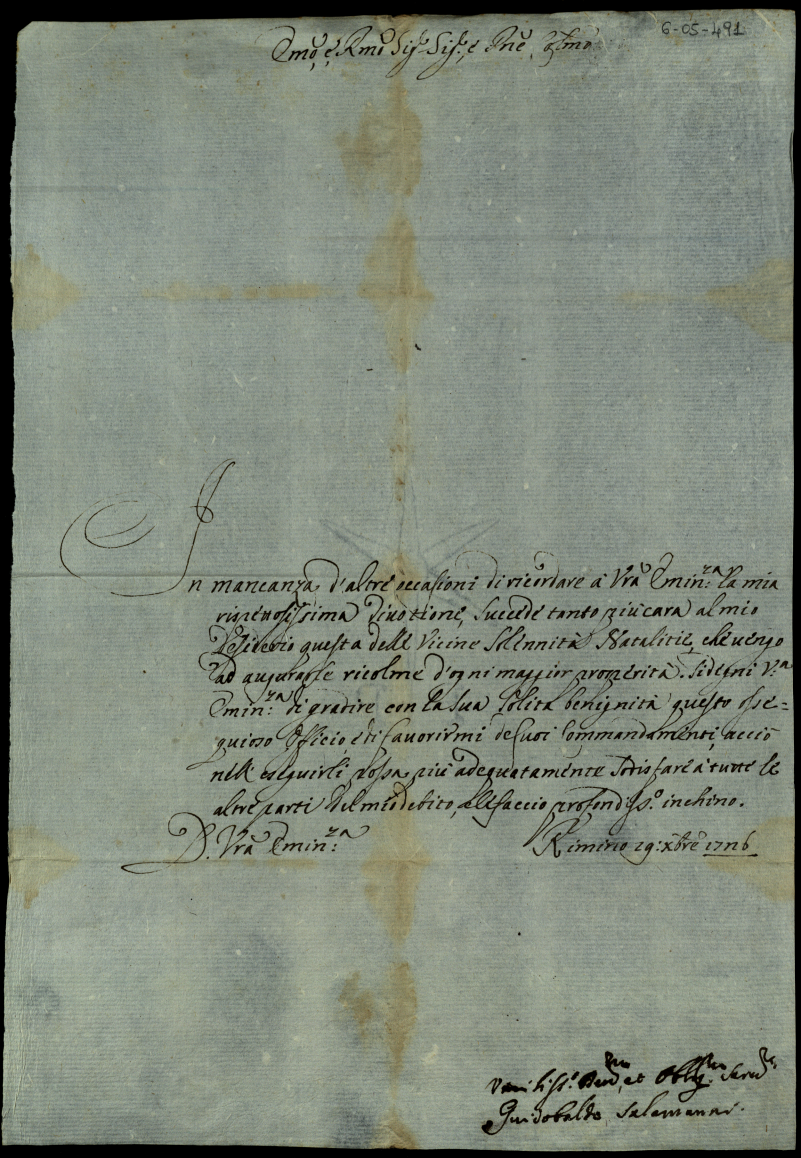 6-05-491
Emo, e Rmo Sig.r Sig.r, e Pne Colmo
In mancanza d'altre occasioni di ricordare à Vrà Emin:za la mia
rispettosissima divotione, succede tanto più cara al mio
desiderio questa delle vicine Solennità Natalitie, che vengo
ad augurarle ricolme d'ogni maggior prosperità. Si degni V:a
Emin:za di gradire con la sua solita benignità questo osse=
quioso Officio, e di favorirmi de suoi Commandamenti, acciò
nell'eseguirli possa più adeguatamente sodisfare à tutte le
altre parti del mio debito, e le faccio profondiss.o inchino.
D. Vrà Emin:za
Rimino 19: Xbre
Umiliss.o Dev.mo, et Obblig.mo Serv.re
Guidobaldo Salamanni.